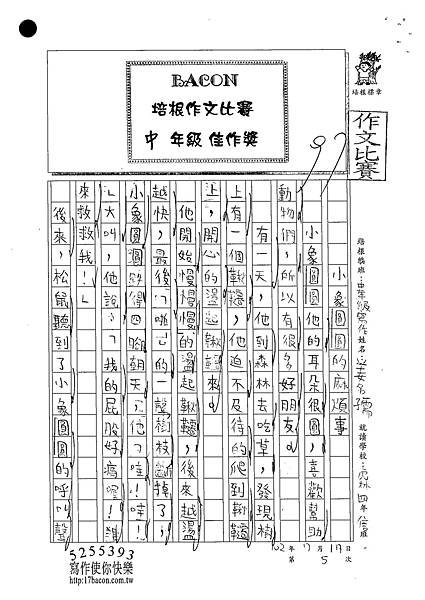 BACON
培根作文比賽
中 年級 佳作獎
培根標章
作文比賽
97
小象圓圓的麻煩事
小象圓圓他的耳朵很圓，喜歡幫助
動物們，所以有很多好朋友。
有一天，他到森林去吃草，發現樹
上有一個鞦韆，他迫不及待的爬到鞦韆
上，開心的盪起鞦韆來。
他開始慢慢的盪起鞦韆，後來越盪
越快，最後「啪」的一聲樹枝斷掉了，
小象圓圓跌得四腳朝天，他「哇！哇！
」大叫，他說：「我的屁股好痛喔！誰
來救救我！」
後來，松鼠聽到了小象圓圓的呼叫聲
培根獎班：中年級寫作 姓名：
就讀學校：虎林四年
102年7月17日
第5次
5255393
寫作使你快樂
http:17bacon.com.tw